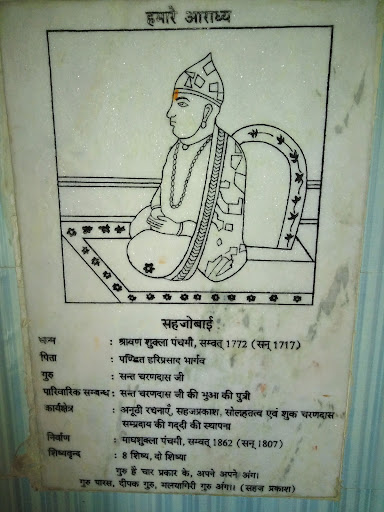 हमारे आराध्य
सहजोबाई
जन्म : श्रावण शुक्ला पंचमी, सम्वत् 1772 (सन् 1717)
पिता : पण्डित हरिप्रसाद भार्गव
गुरु : सन्त चरणदास जी
पारिवारिक सम्बन्ध : सन्त चरणदास जी की भुआ की पुत्री
कार्यक्षेत्र : अनूठी रचनाएँ, सहजप्रकाश, सोलहतत्व एवं शुक चरणदास
सम्प्रदाय की गद्दी की स्थापना
निर्वाण : माघशुक्ला पंचमी, सम्वत् 1862 (सन् 1807)
शिष्यवृन्द : 8 शिष्य, दो शिष्या
गुरु है चार प्रकार के, अपने अपने अंग।
गुरु पारस, दीपक गुरु, मलयागिरी गुरु अंग।। (सहज प्रकाश)